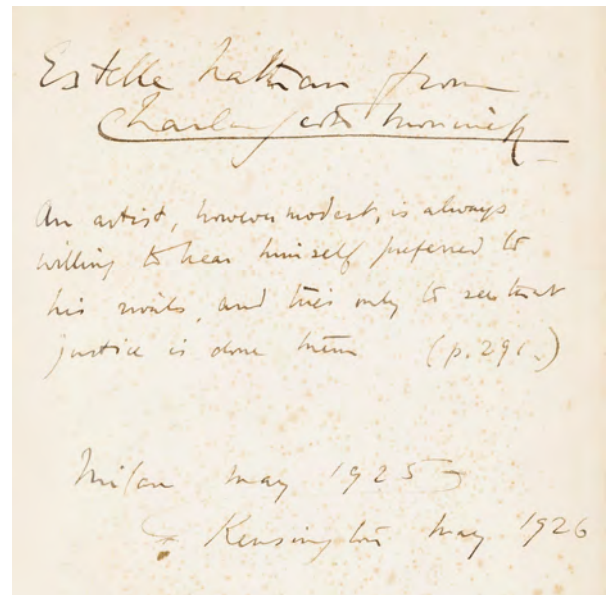 Estelle Nathan from
Charles Scott Moncrieff
An artist, however modest, is always
willing to hear himself preferred to
his rivals, and tries only to see that
justice is done them (p. 291.)
Milan May 1925
Kensington May 1926